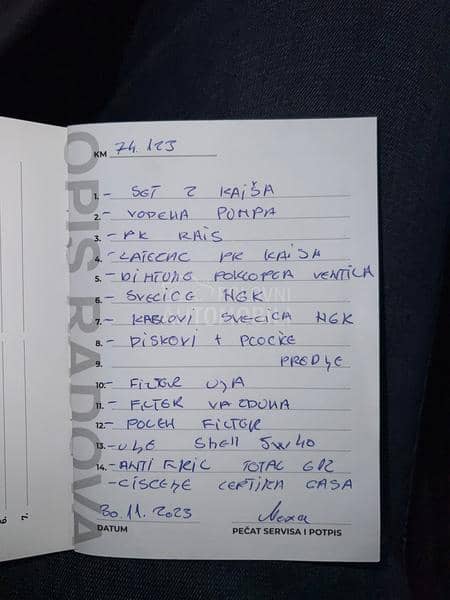 OPIS RADOVA
KM 74.123
1.- SET Z KAIŠA
2.- VODENA PUMPA
3.- PK KAIS
4.- ZATEZAC PK KAISA
5.- DIHTUNG POKLOPCA VENTILA
6.- SVECICE NGK
7.- KABLOVI SVECICA NGK
8.- DISKOVI + PLOCICE
9. PREDNJE
10.- FILTER ULJA
11.- FILTER VAZDUHA
12.- POLEN FILTER
13.- ULJE Shell 5W40
14.- ANTI FRIZ TOTAL G12
- CISCENJE LEPTIRA GASA
30.11.2023
DATUM
PEČAT SERVISA I POTPIS
6.
7.